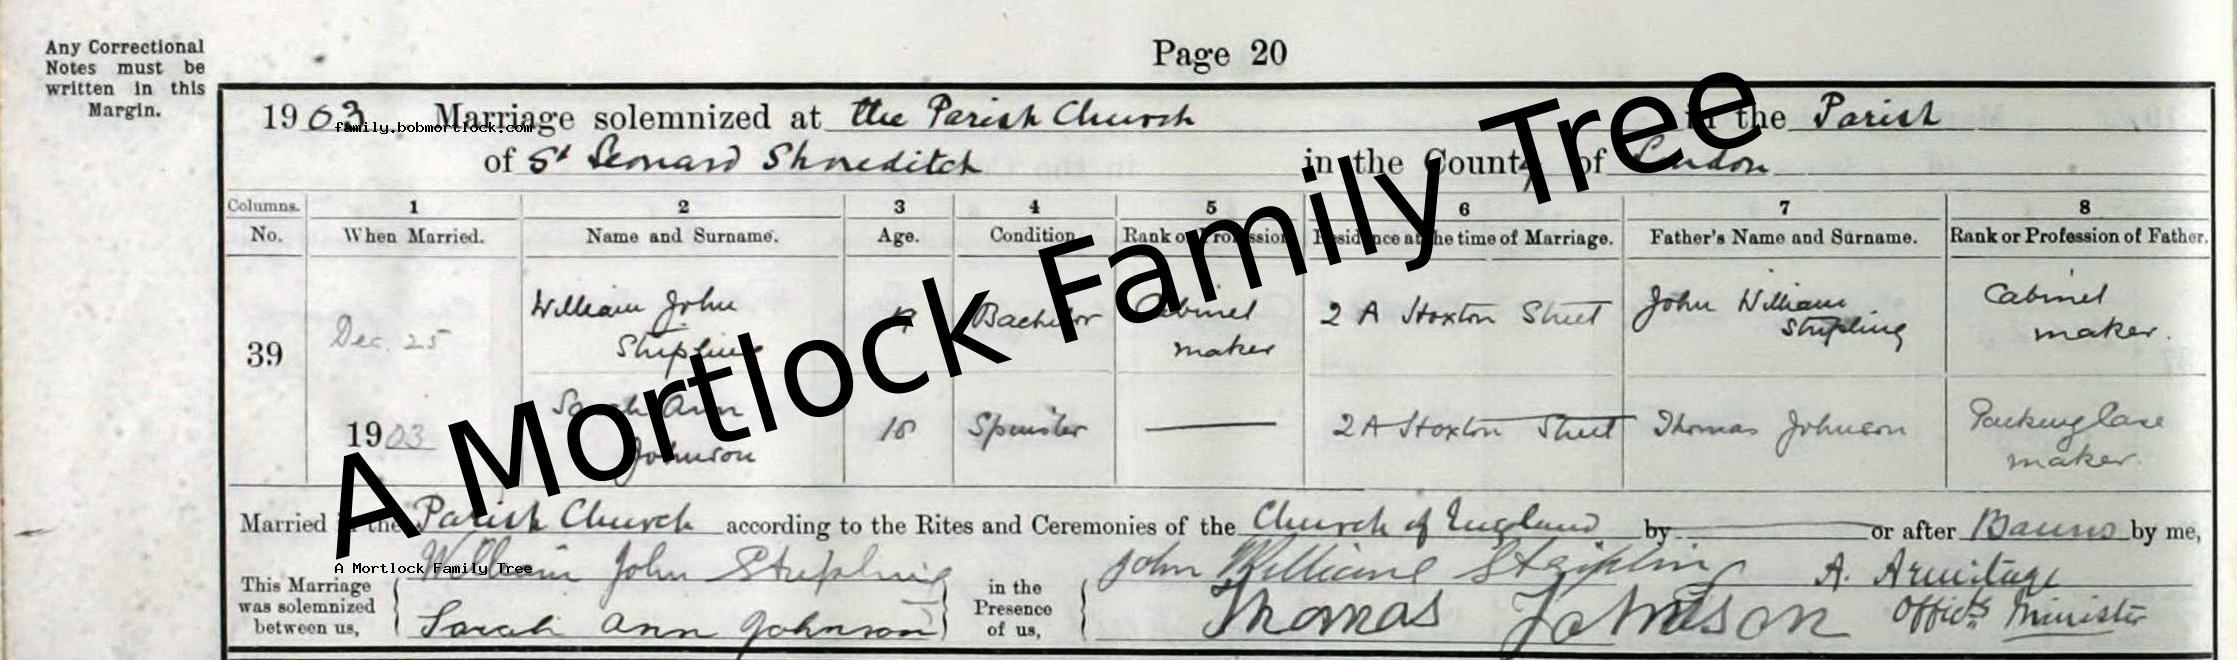 Any Correctional
Notes must be
written in this
Margin.
Page 20
1903 Marriage solemnized at the Parish Church in the Parish
family.bobmortlock.com
of St Leonard Shoreditch in the County of London
Columns. 1 2 3 4 5 6 7 8
No. When Married. Name and Surname. Age. Condition Rank or Profession Residence at the time of Marriage. Father's Name and Surname. Rank or Profession of Father.
39 Dec. 25 1903
William John Stripling 19 Bachelor Cabinet maker 2 A Hoxton Street John William Stripling Cabinet maker.
Sarah Ann Johnson 18 Spinster 2 A Hoxton Street Thomas Johnson Packing Case maker.
A Mortlock Family Tree
Married in the Parish Church according to the Rites and Ceremonies of the Church of England by or after Banns by me,
A Mortlock Family Tree
This Marriage
was solemnized
between us,
William John Stripling
Sarah Ann Johnson
in the
Presence
of us,
John William Stripling
Thomas Johnson
A. Armitage
Offic Minister